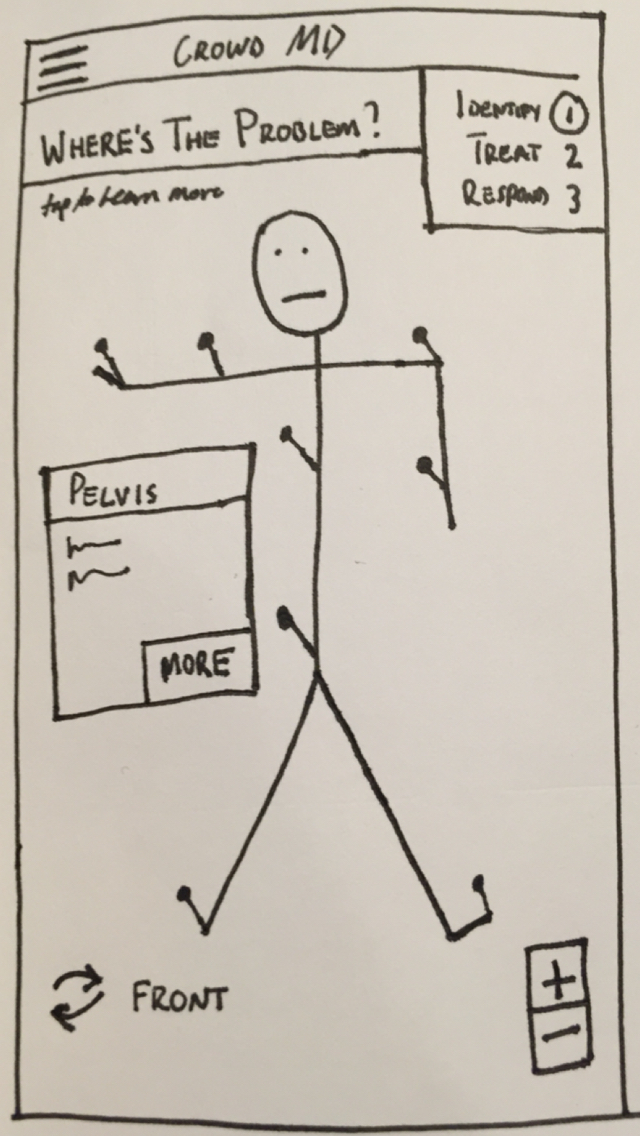 CROWD MD
WHERE'S THE PROBLEM?
tap to learn more
IDENTIFY 1
TREAT 2
RESPOND 3
PELVIS
MORE
FRONT
+
-